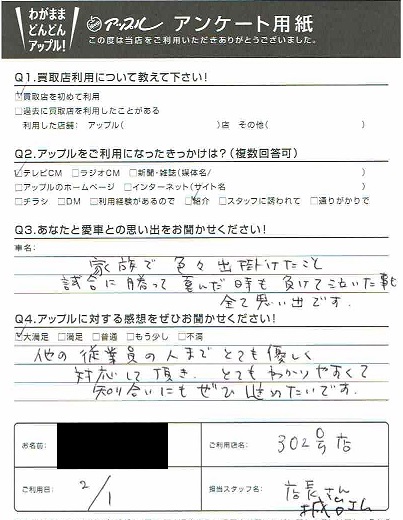 わがまま
どんどん
アップル!
アップル アンケート用紙
この度は当店をご利用いただきありがとうございました。
Q1.買取店利用について教えて下さい!
☑買取店を初めて利用
□過去に買取店を利用したことがある
利用した店舗: アップル( )店 その他( )
Q2.アップルをご利用になったきっかけは?(複数回答可)
☑テレビCM □ラジオCM □新聞・雑誌(媒体名/ )
□アップルのホームページ □インターネット(サイト名 )
□チラシ □DM □利用経験があるので ☑紹介 □スタッフに誘われて □通りがかりで
Q3.あなたと愛車との思い出をお聞かせください!
車名:
家族で色々出掛けたこと
試合に勝って喜んだ時も負けて泣いた事も
全て思い出です.
Q4.アップルに対する感想をぜひお聞かせください!
☑大満足 □満足 □普通 □もう少し □不満
他の従業員の人までとても優しく
対応して頂き、とてもわかりやすくて
知り合いにもぜひ進めたいです.
お名前:
ご利用店名:
302号店
ご利用日:
2/1
担当スタッフ名:
店長さん